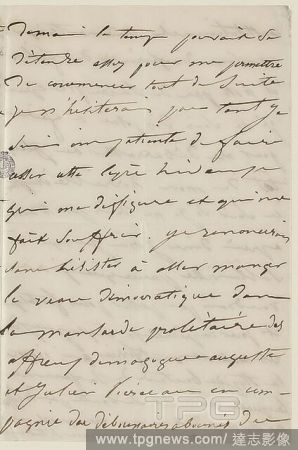 Demain le temps pouvait se
détendre assez pour me permettre
de commencer tout de suite
je n'hésiterais pas tant je
suis impatiente de faire
cette lèpre hideuse
qui me défigure et qui me
fait souffrir. je renoncerais
sans hésister à aller manger
le veau démocratique dans
la mansarde prolétaire des
affreux démagogues auguste
et Julien en com-
pagnie des débonnaires abonnés du
TPG
www.tpgnews.com / 達志影像